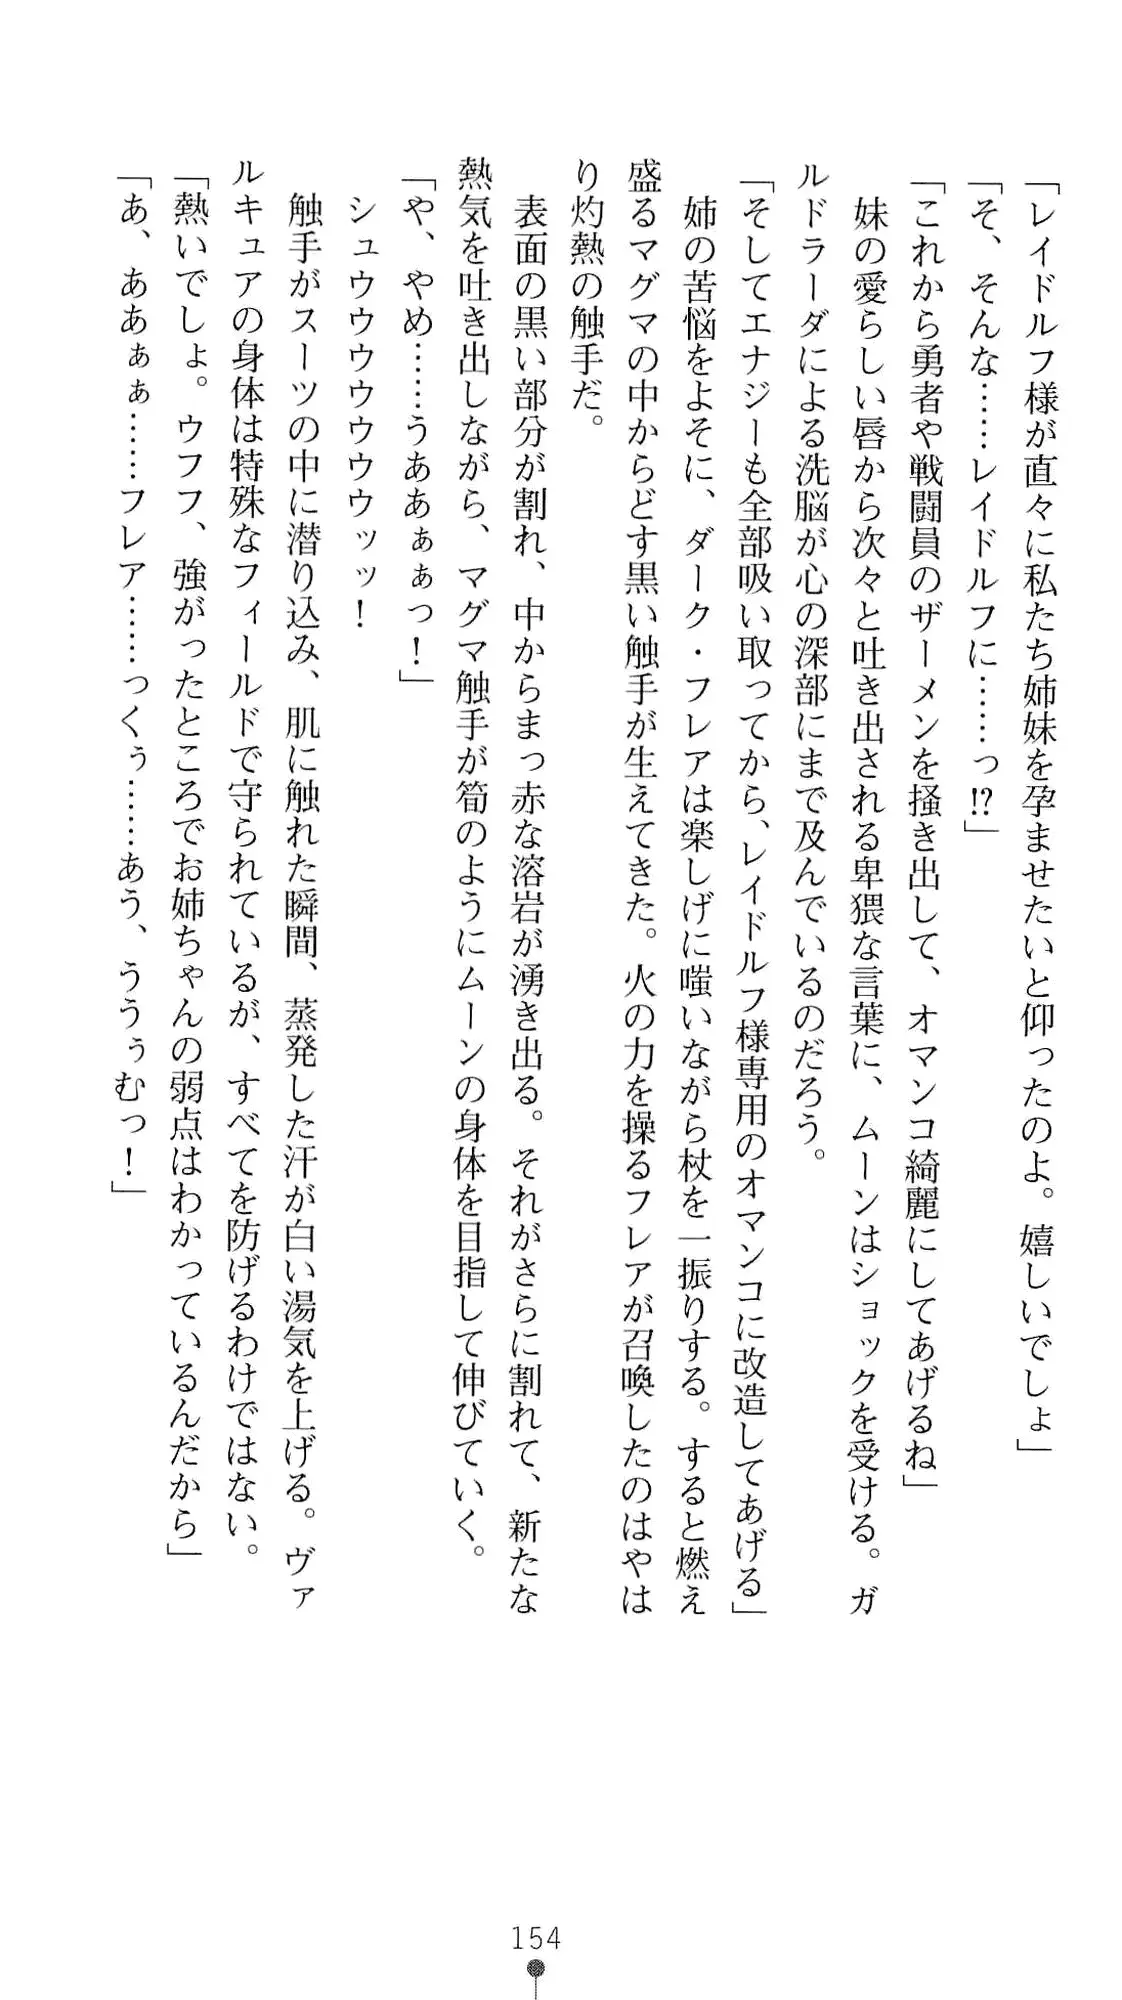 「レイドルフ様が直々に私たち姉妹を孕ませたいと仰ったのよ。嬉しいでしょ」
「そ、そんな……レイドルフに……っ!?」
「これから勇者や戦闘員のザーメンを掻き出して、オマンコ綺麗にしてあげるね」
妹の愛らしい唇から次々と吐き出される卑猥な言葉に、ムーンはショックを受ける。ガ
ルドラーダによる洗脳が心の深部にまで及んでいるのだろう。
「そしてエナジーも全部吸い取ってから、レイドルフ様専用のオマンコに改造してあげる」
姉の苦悩をよそに、ダーク・フレアは楽しげに嗤いながら杖を一振りする。すると燃え
盛るマグマの中からどす黒い触手が生えてきた。火の力を操るフレアが召喚したのはやは
り灼熱の触手だ。
表面の黒い部分が割れ、中からまっ赤な溶岩が湧き出る。それがさらに割れて、新たな
熱気を吐き出しながら、マグマ触手が筍のようにムーンの身体を目指して伸びていく。
「や、やめ……うああぁぁっ！」
シュウウウウウウウッッ！
触手がスーツの中に潜り込み、肌に触れた瞬間、蒸発した汗が白い湯気を上げる。ヴァ
ルキュアの身体は特殊なフィールドで守られているが、すべてを防げるわけではない。
「熱いでしょ。ウフフ、強がったところでお姉ちゃんの弱点はわかっているんだから」
「あ、ああぁぁ……フレア……っくぅ……あう、ううぅむっ！」
154